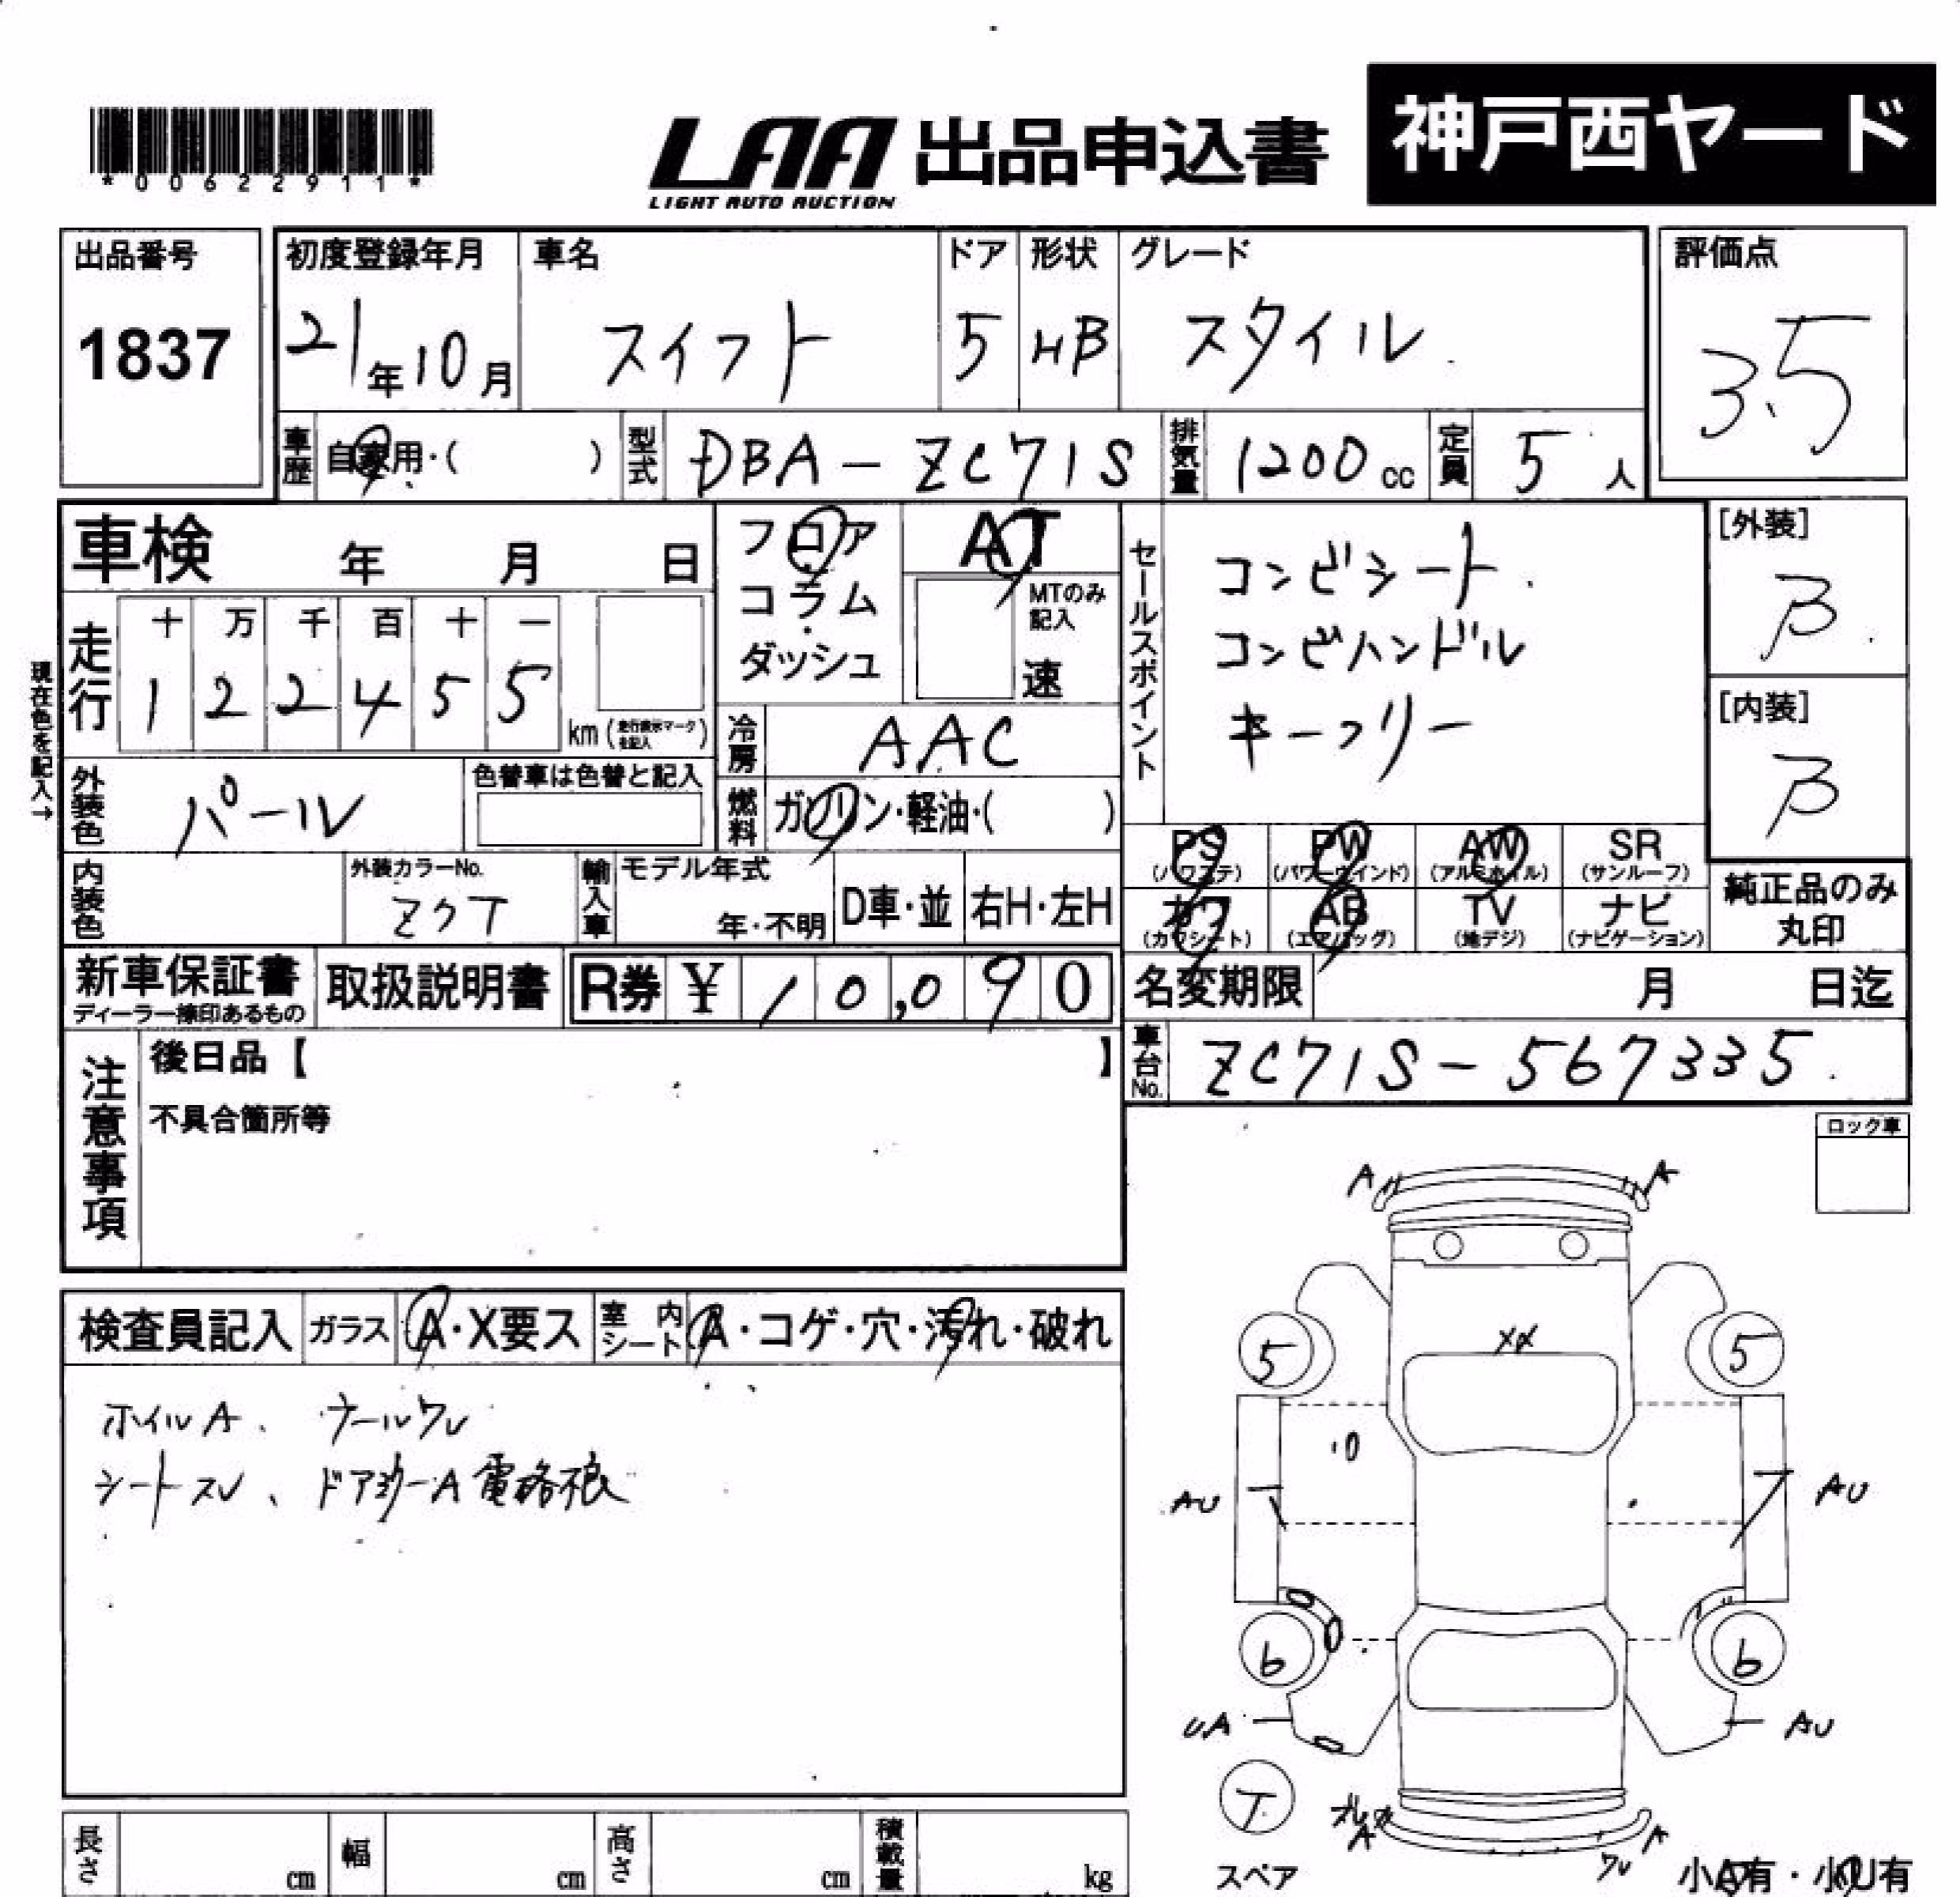 *00622911*
LAA 出品申込書 神戸西ヤード
LIGHT AUTO AUCTION
出品番号 初度登録年月 車名 ドア 形状 グレード 評価点
1837 21年10月 スイフト 5 HB スタイル 3.5
車歴 自家用・( ) 型式 DBA-ZC71S 排気量 1200cc 定員 5人
車検 年 月 日
フロア・コラム・ダッシュ
AT
MTのみ記入
速
セールスポイント
コンビシート
コンビハンドル
キーフリー
[外装]
B
[内装]
B
現在色を記入→
走行 十 万 千 百 十 一
1 2 2 4 5 5 km (走行表示マークを記入)
冷房 AAC
外装色 パール 色替車は色替と記入
燃料 ガソリン・軽油・( )
PS (パワステ) PW (パワーウインド) AW (アルミホイル) SR (サンルーフ)
カワ (カワシート) AB (エアバッグ) TV (地デジ) ナビ (ナビゲーション)
純正品のみ丸印
内装色 外装カラーNo. Z7T 輸入車 モデル年式 年・不明 D車・並 右H・左H
新車保証書 ディーラー捺印あるもの 取扱説明書 R券 ¥ 10,090
名変期限 月 日迄
車台No. ZC71S-567335
注意事項
後日品【 】
不具合箇所等
ロック車
検査員記入 ガラス A・X要ス 室内シート A・コゲ・穴・汚れ・破れ
ホイルA、
シートスレ、
A A
5 5
AU AU
6 6
UA AU
T
スペア
A A
ワレ
小A有・小U有
長さ cm 幅 cm 高さ cm 積載量 kg